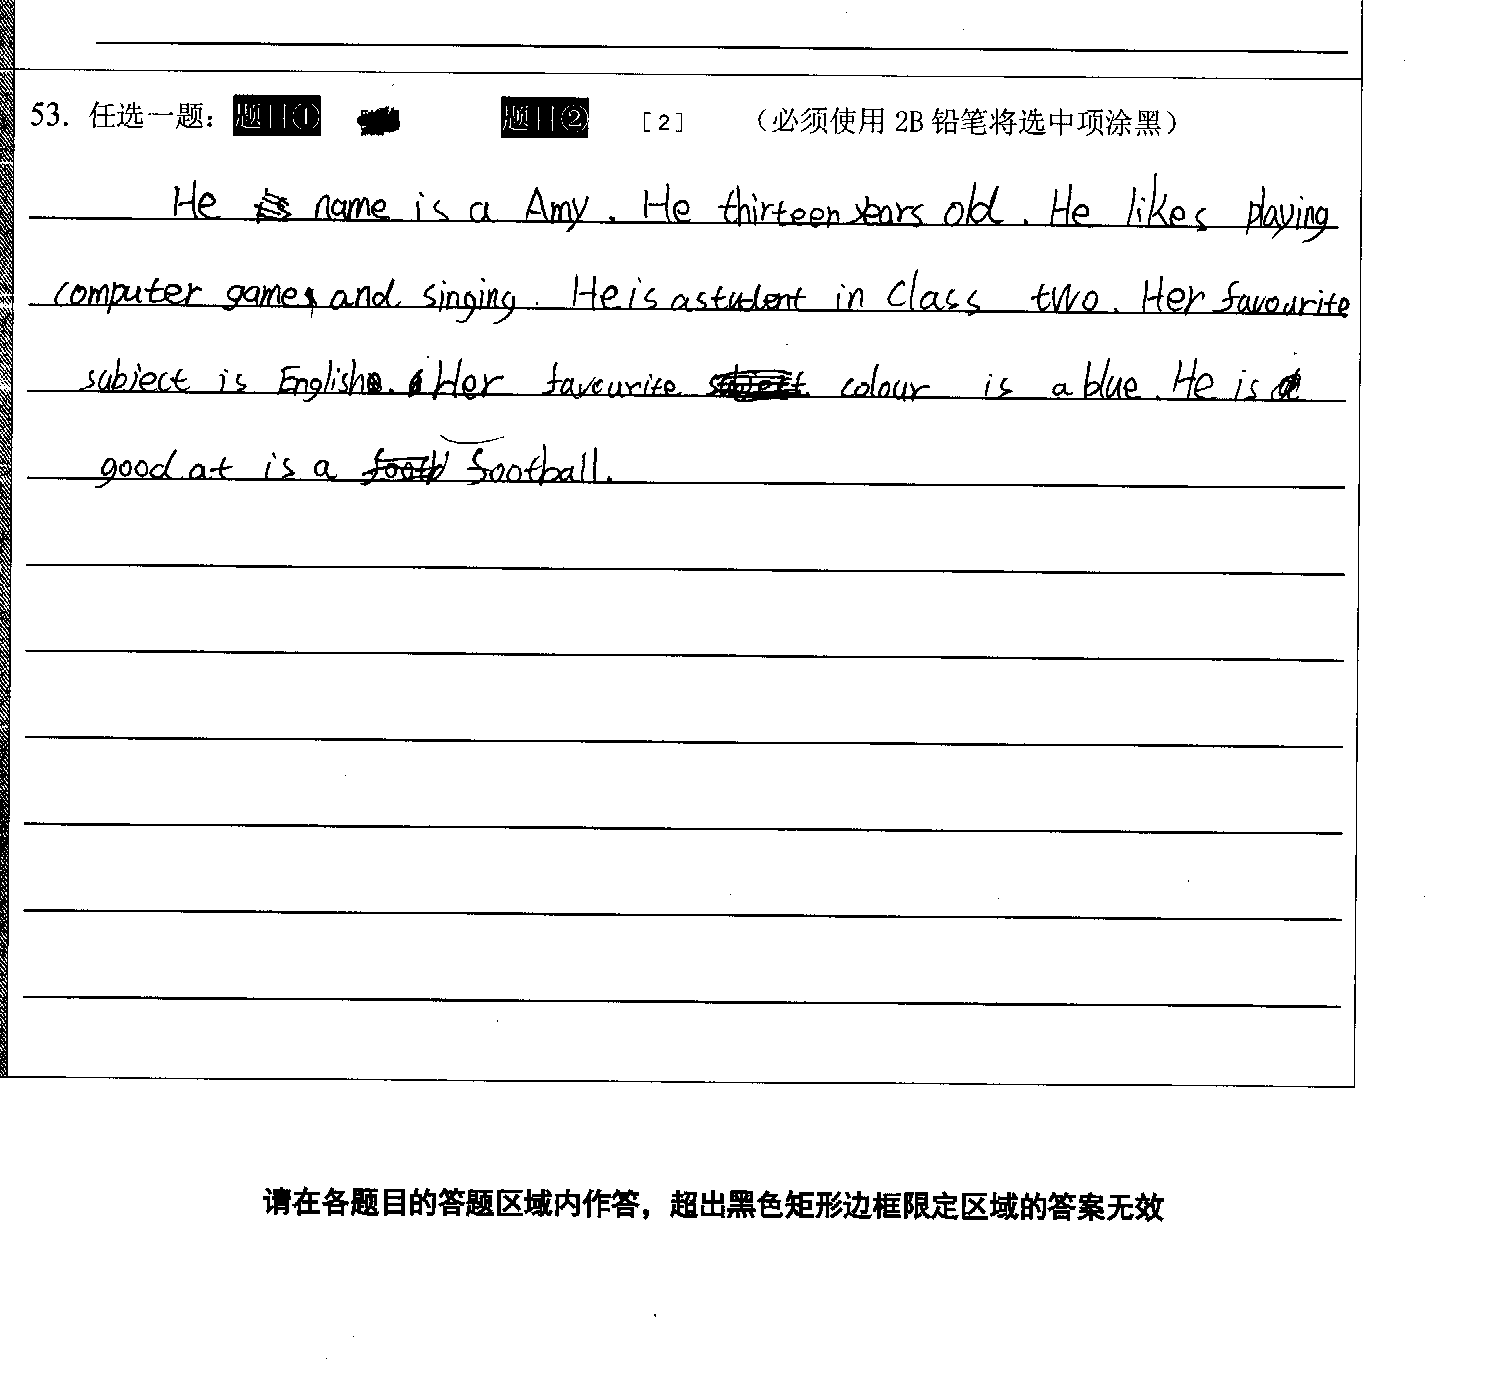 53. 任选一题： 题目① 题目② [2] （必须使用 2B 铅笔将选中项涂黑）
He name is a Amy. He thirteen years old. He likes playing
computer games and singing. He is a student in Class two. Her favourite
subject is English. Her favourite colour is a blue. He is
good at is a football.
请在各题目的答题区域内作答，超出黑色矩形边框限定区域的答案无效